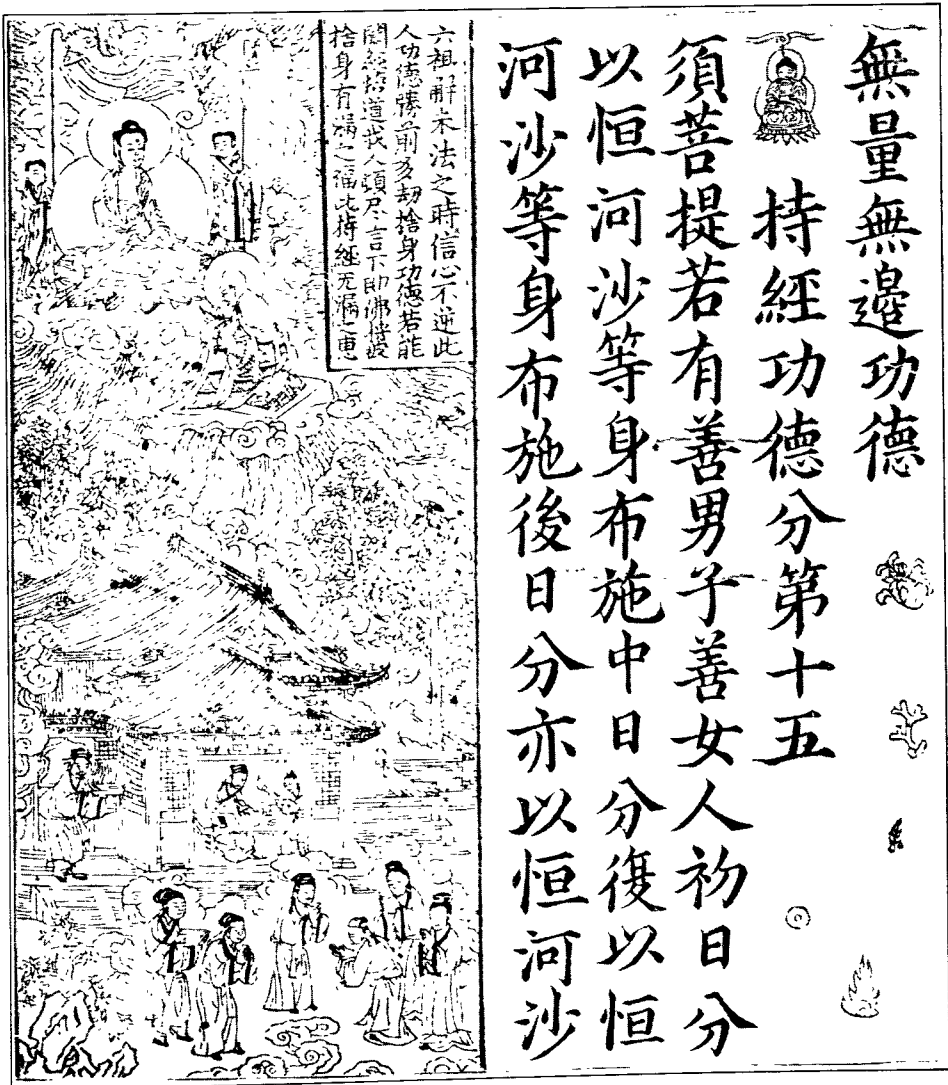 無量無邊功德
持經功德分第十五
須菩提若有善男子善女人初日分
以恒河沙等身布施中日分復以恒
河沙等身布施後日分亦以恒河沙
六祖解末法之時信心不逆此
人功德勝前多劫捨身功德若能
聞經悟道我人頓尽言下即佛将彼
捨身有漏之福比持經无漏之惠